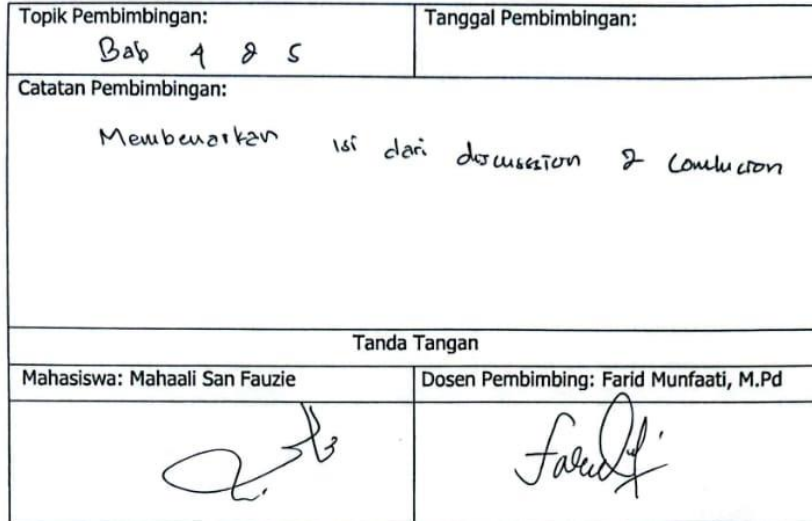 Topik Pembimbingan:
Tanggal Pembimbingan:
Bab 4 & 5
Catatan Pembimbingan:
Membenarkan isi dari discussion & Conclusion
Tanda Tangan
Mahasiswa: Mahaali San Fauzie
Dosen Pembimbing: Farid Munfaati, M.Pd